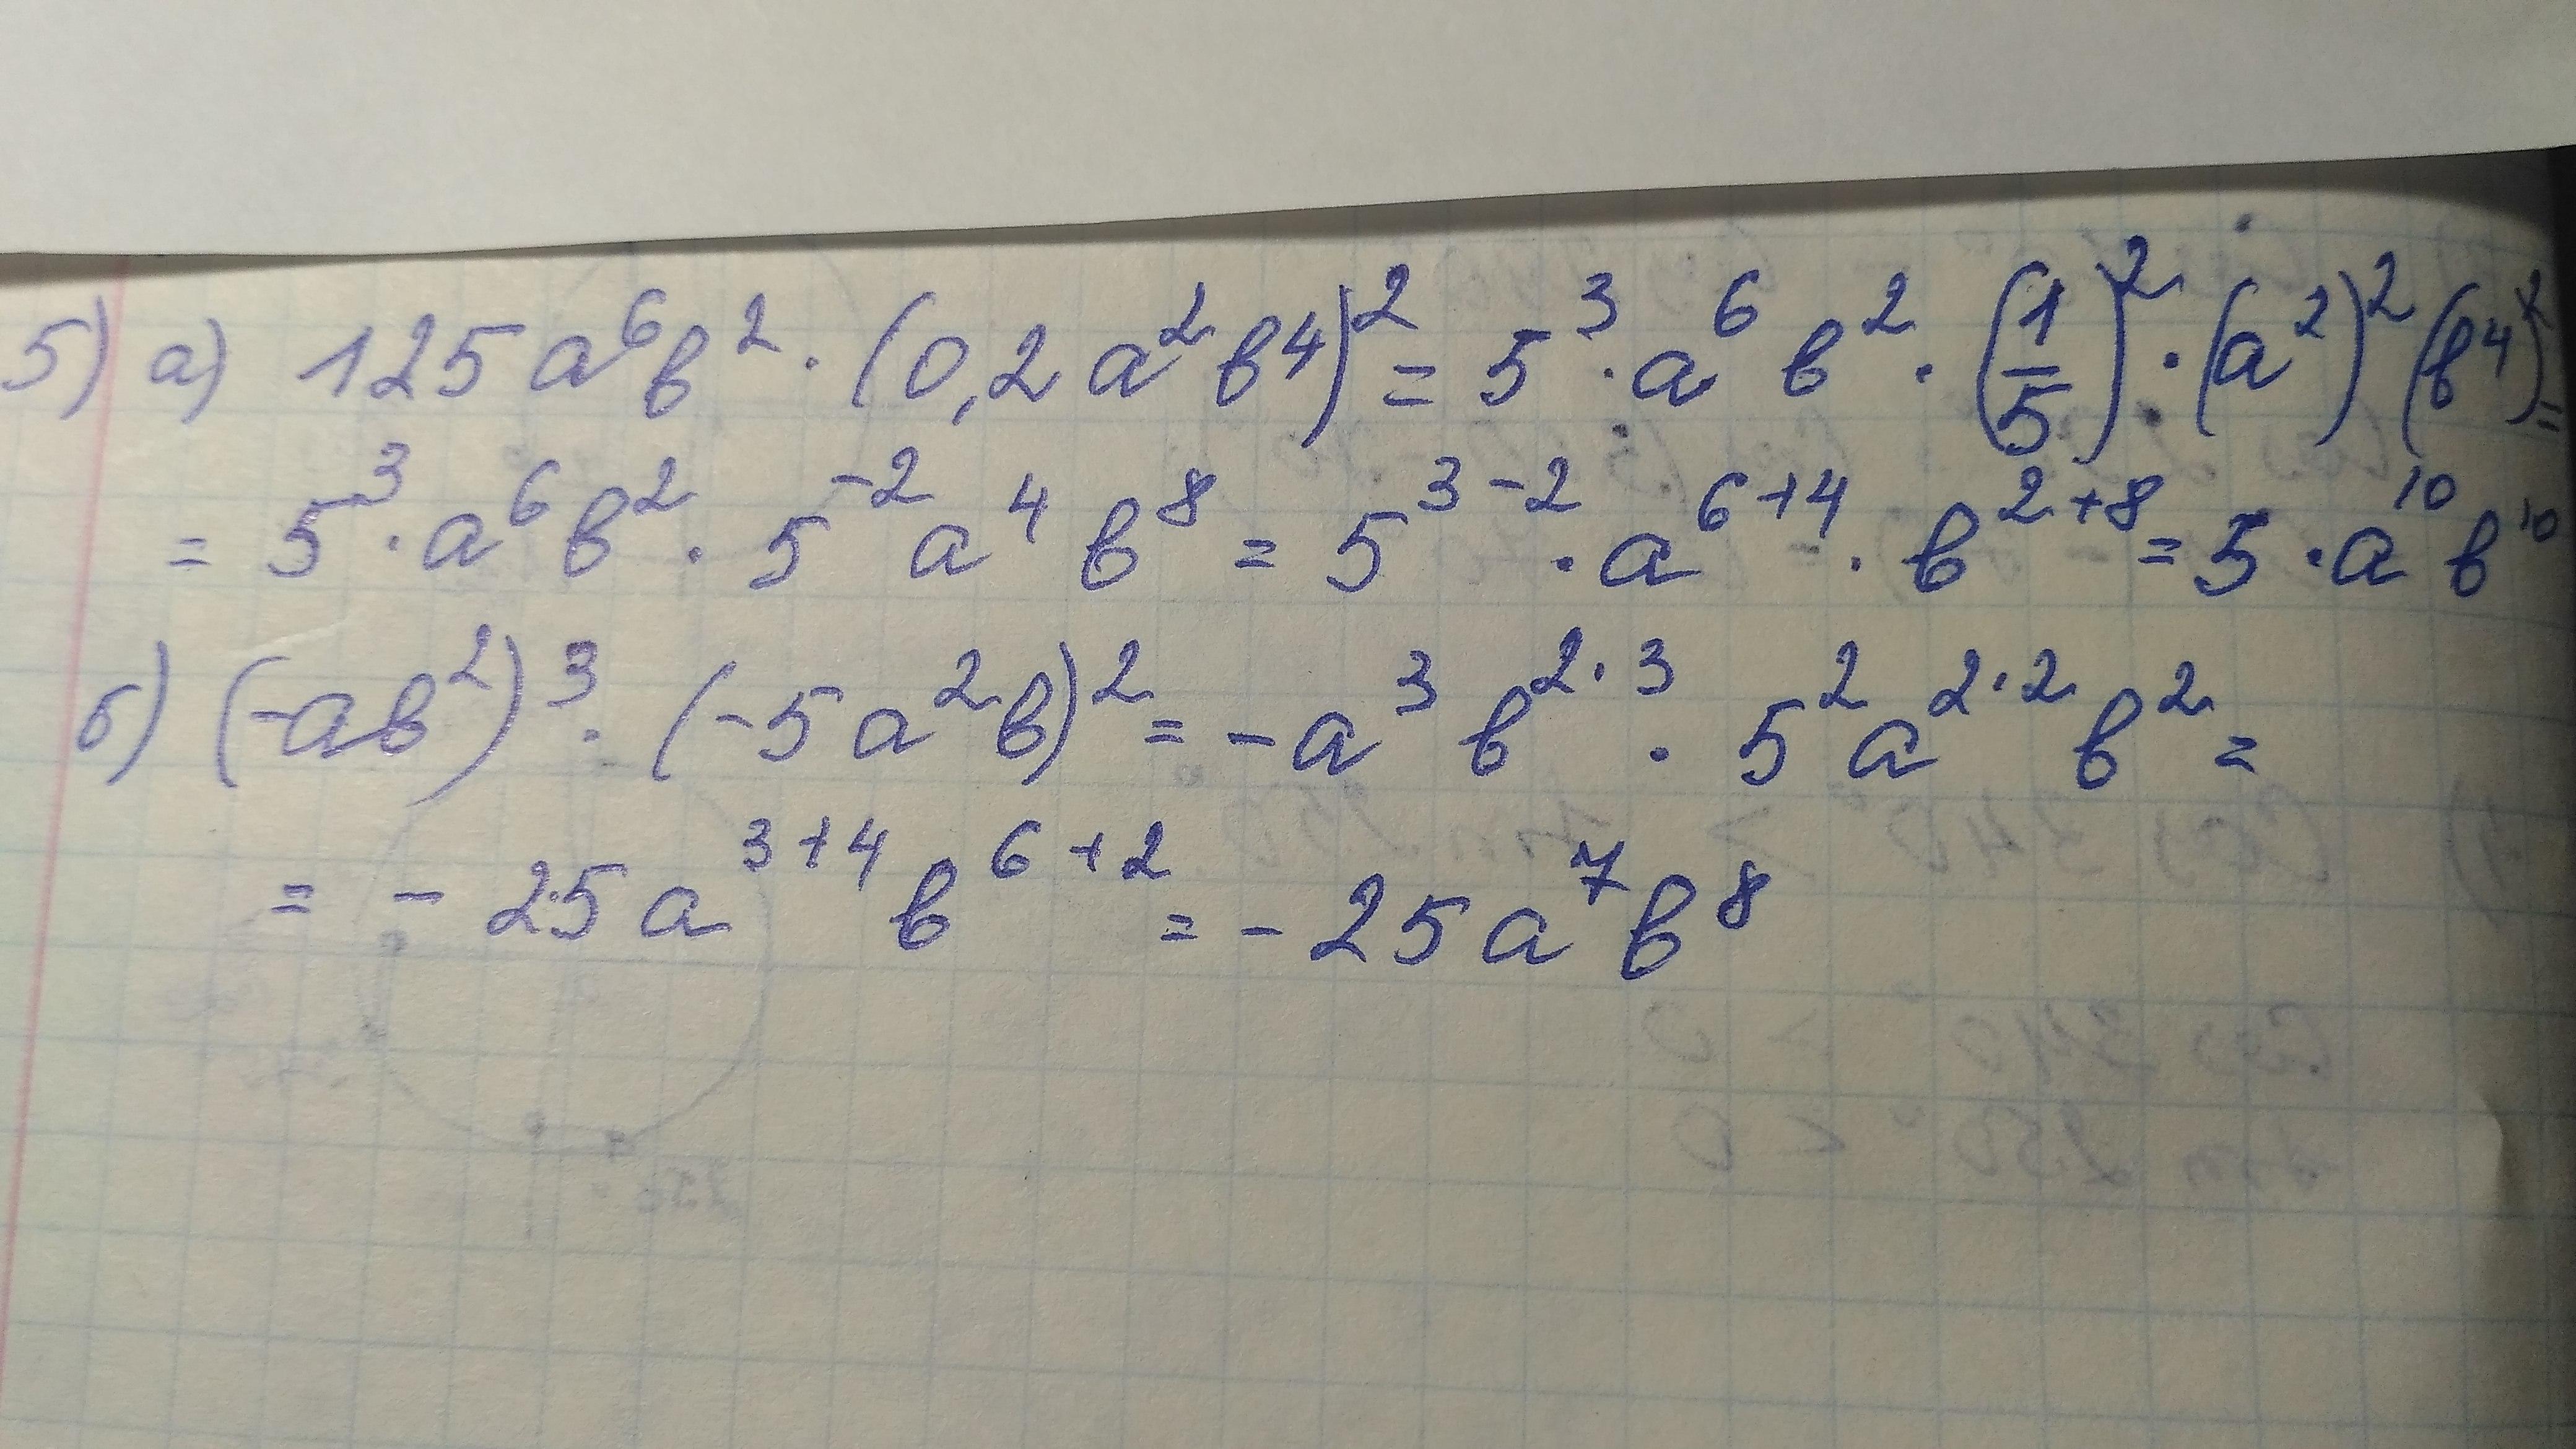 5) а) 125a⁶b² · (0,2a²b⁴)² = 5³ · a⁶b² · (1/5)² · (a²)² (b⁴)² =
= 5³ · a⁶b² · 5⁻² a⁴ b⁸ = 5³⁻² · a⁶⁺⁴ · b²⁺⁸ = 5 · a¹⁰ b¹⁰
б) (-ab²)³ · (-5a²b)² = -a³ b²·³ · 5² a²·² b² =
= - 25a³⁺⁴ b⁶⁺² = - 25a⁷b⁸